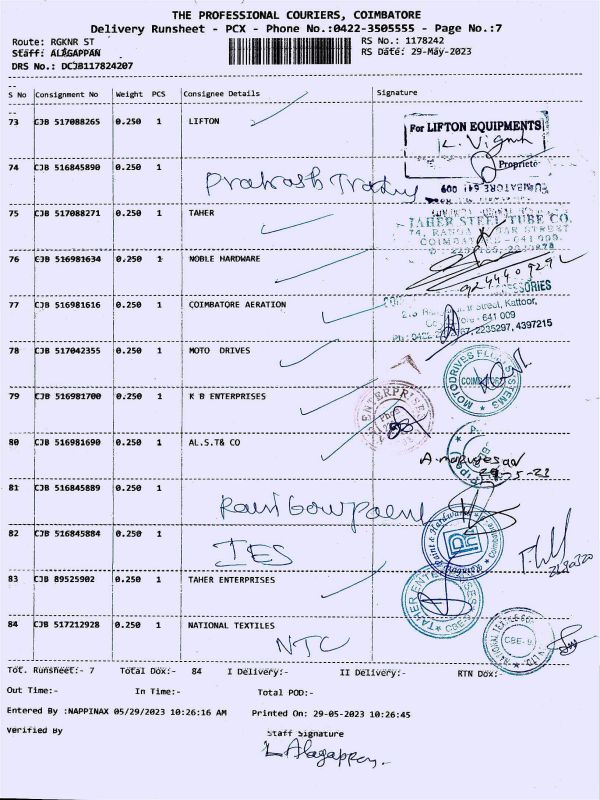 THE PROFESSIONAL COURIERS, COIMBATORE
Delivery Runsheet - PCX - Phone No.:0422-3505555 - Page No.:7
Route: RGKNR ST RS No.: 1178242
Staff: ALAGAPPAN RS Date: 29-May-2023
DRS No.: DCJB117824207
S No Consignment No Weight PCS Consignee Details Signature
73 CJB 517088265 0.250 1 LIFTON
For LIFTON EQUIPMENTS
L. Vignesh
Proprietor
74 CJB 516845890 0.250 1 Prakash Trading
COIMBATORE 641 009
75 CJB 517088271 0.250 1 TAHER
TAHER STEEL TUBE CO.
STREET
COIMBATORE - 641 009.
76 CJB 516981634 0.250 1 NOBLE HARDWARE
77 CJB 516981616 0.250 1 COIMBATORE AERATION
ACCESSORIES
Street, Kattoor,
641 009
2235297, 4397215
78 CJB 517042355 0.250 1 MOTO DRIVES
79 CJB 516981700 0.250 1 K B ENTERPRISES
ENTERPRISES
80 CJB 516981690 0.250 1 AL.S.T& CO
A. murugesan
81 CJB 516845889 0.250 1
82 CJB 516845884 0.250 1 IES
83 CJB 89525902 0.250 1 TAHER ENTERPRISES
TAHER ENTERPRISES
CBE-9
84 CJB 517212928 0.250 1 NATIONAL TEXTILES
NTC
CBE-9
Tot. Runsheet:- 7 Total Dox:- 84 I Delivery:- II Delivery:- RTN Dox:-
Out Time:- In Time:- Total POD:-
Entered By :NAPPINAX 05/29/2023 10:26:16 AM Printed On: 29-05-2023 10:26:45
Verified By Staff Signature
L Alagappan.